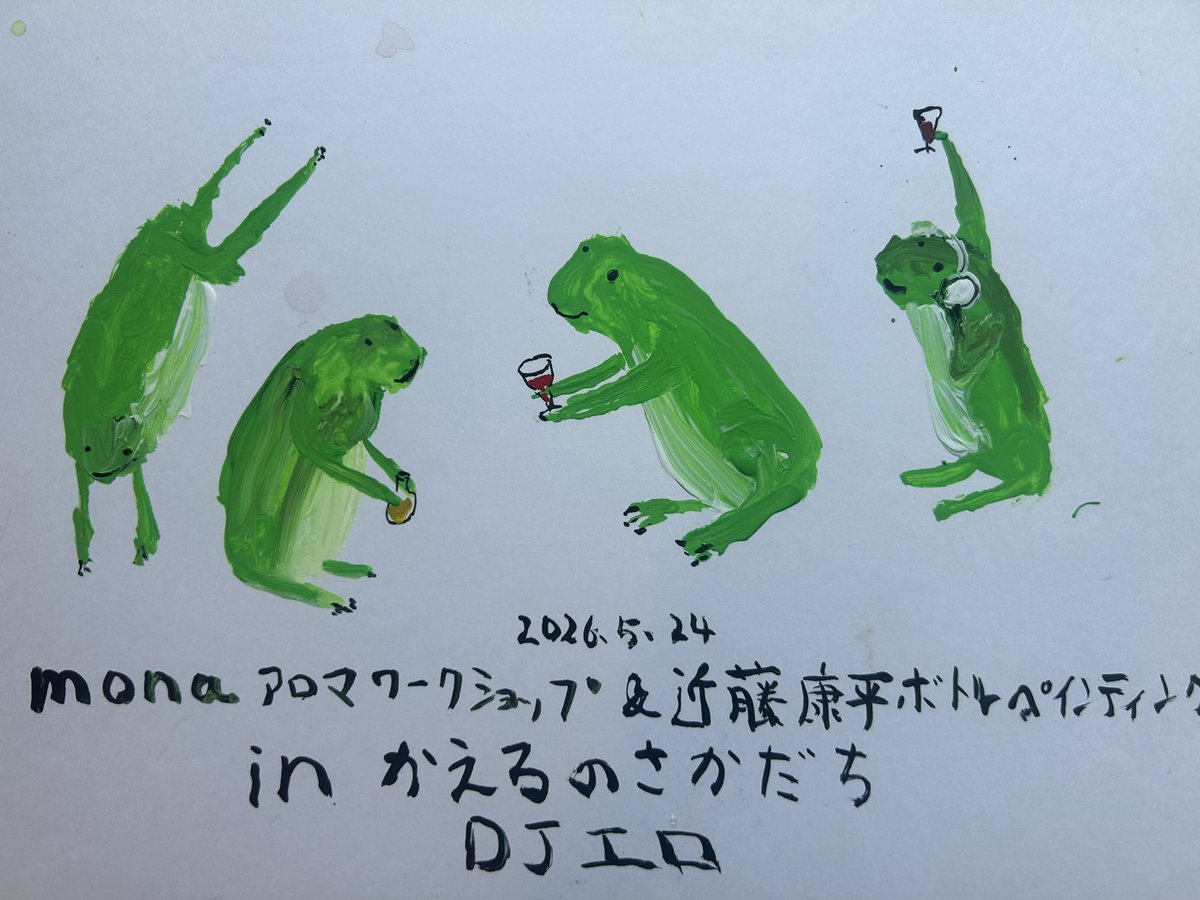 2026.5.24
mona アロマワークショップ & 近藤康平ボトルペインティング
in かえるのさかだち
DJエロ